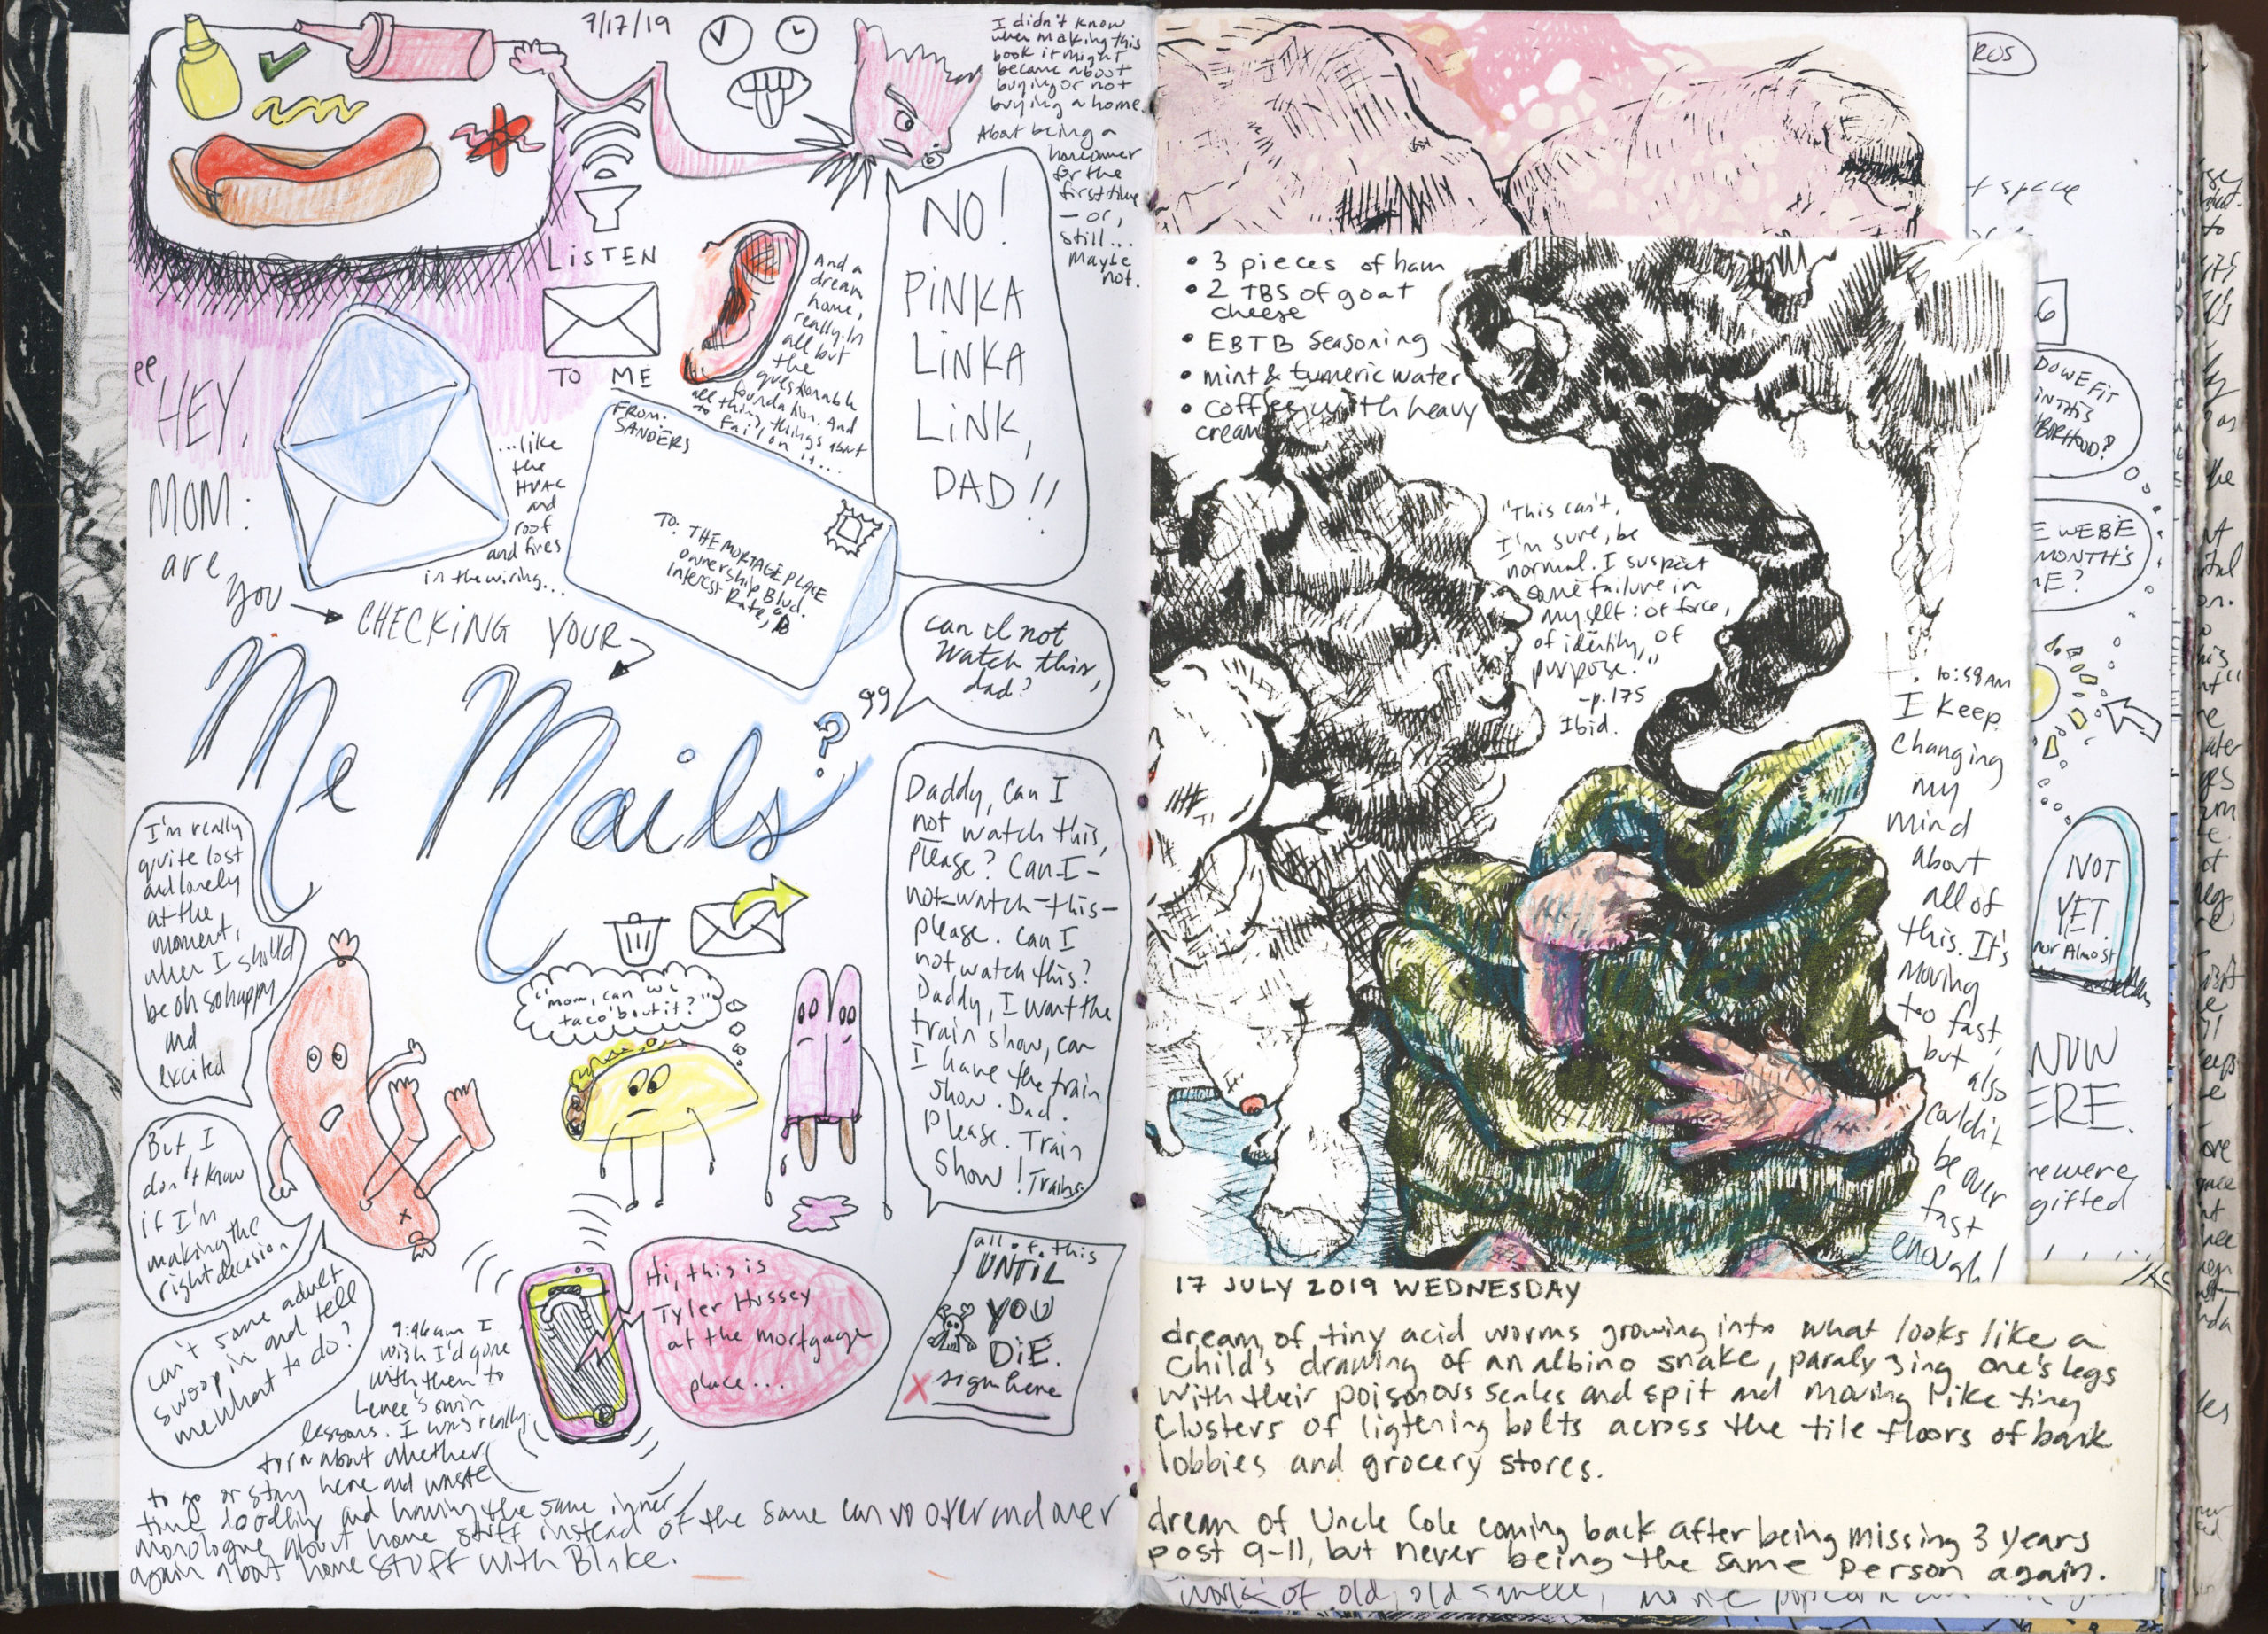 7/17/19
I didn't know
when making this
book it might
become about
buying or not
buying a home.
About being a
homeowner
for the
first time
— or,
still...
Maybe
not.
LISTEN
TO ME
And a
dream
home,
really. In
all but
the
questionable
foundation. And
all things, things about
to fail on it...
...like
the
HVAC
and
roof
and fires
in the wiring...
NO!
PINKA
LINKA
LINK,
DAD!!
"HEY,
MOM:
are
you
CHECKING YOUR
Me Mails?"
FROM:
SANDERS
TO: THE MORTAGE PLACE
Ownership Blvd.
Interest Rate,
can I not
watch this,
dad?
Daddy, can I
not watch this,
please? Can-I-
not-watch-this-
please. Can I
not watch this?
Daddy, I want the
train show, can
I have the train
show. Dad.
Please. Train
show! Trains.
I'm really
quite lost
and lonely
at the
moment,
when I should
be oh so happy
and
excited
But I
don't know
if I'm
making the
right decision
can't some adult
swoop in and tell
me what to do?
"mom, can we
taco 'bout it?"
Hi, this is
Tyler Hussey
at the mortgage
place...
all of this
UNTIL
YOU
DIE.
X sign here
9:46am I
wish I'd gone
with them to
Lenee's swim
lessons. I was really
torn about whether
to go or stay here and waste
time doodling and having the same inner
monologue about home stuff instead of the same convo over and over
again about home stuff with Blake.
• 3 pieces of ham
• 2 TBS of goat
cheese
• EBTB seasoning
• mint & tumeric water
• coffee with heavy
cream
"This can't,
I'm sure, be
normal. I suspect
some failure in
myself: of force,
of identity, of
purpose."
-p.175
Ibid.
10:59 AM
I keep
changing
my
mind
about
all of
this. It's
moving
too fast,
but also
couldn't
be over
fast
enough!
17 JULY 2019 WEDNESDAY
dream of tiny acid worms growing into what looks like a
child's drawing of an albino snake, paralyzing one's legs
with their poisonous scales and spit and moving like tiny
clusters of ligtening bolts across the tile floors of bank
lobbies and grocery stores.
dream of Uncle Cole coming back after being missing 3 years
post 9-11, but never being the same person again.
ROS
space
6
DO WE FIT
IN THIS
NOT
YET.
nor Almost
NOW
ERE.
were
gifted
of old, old